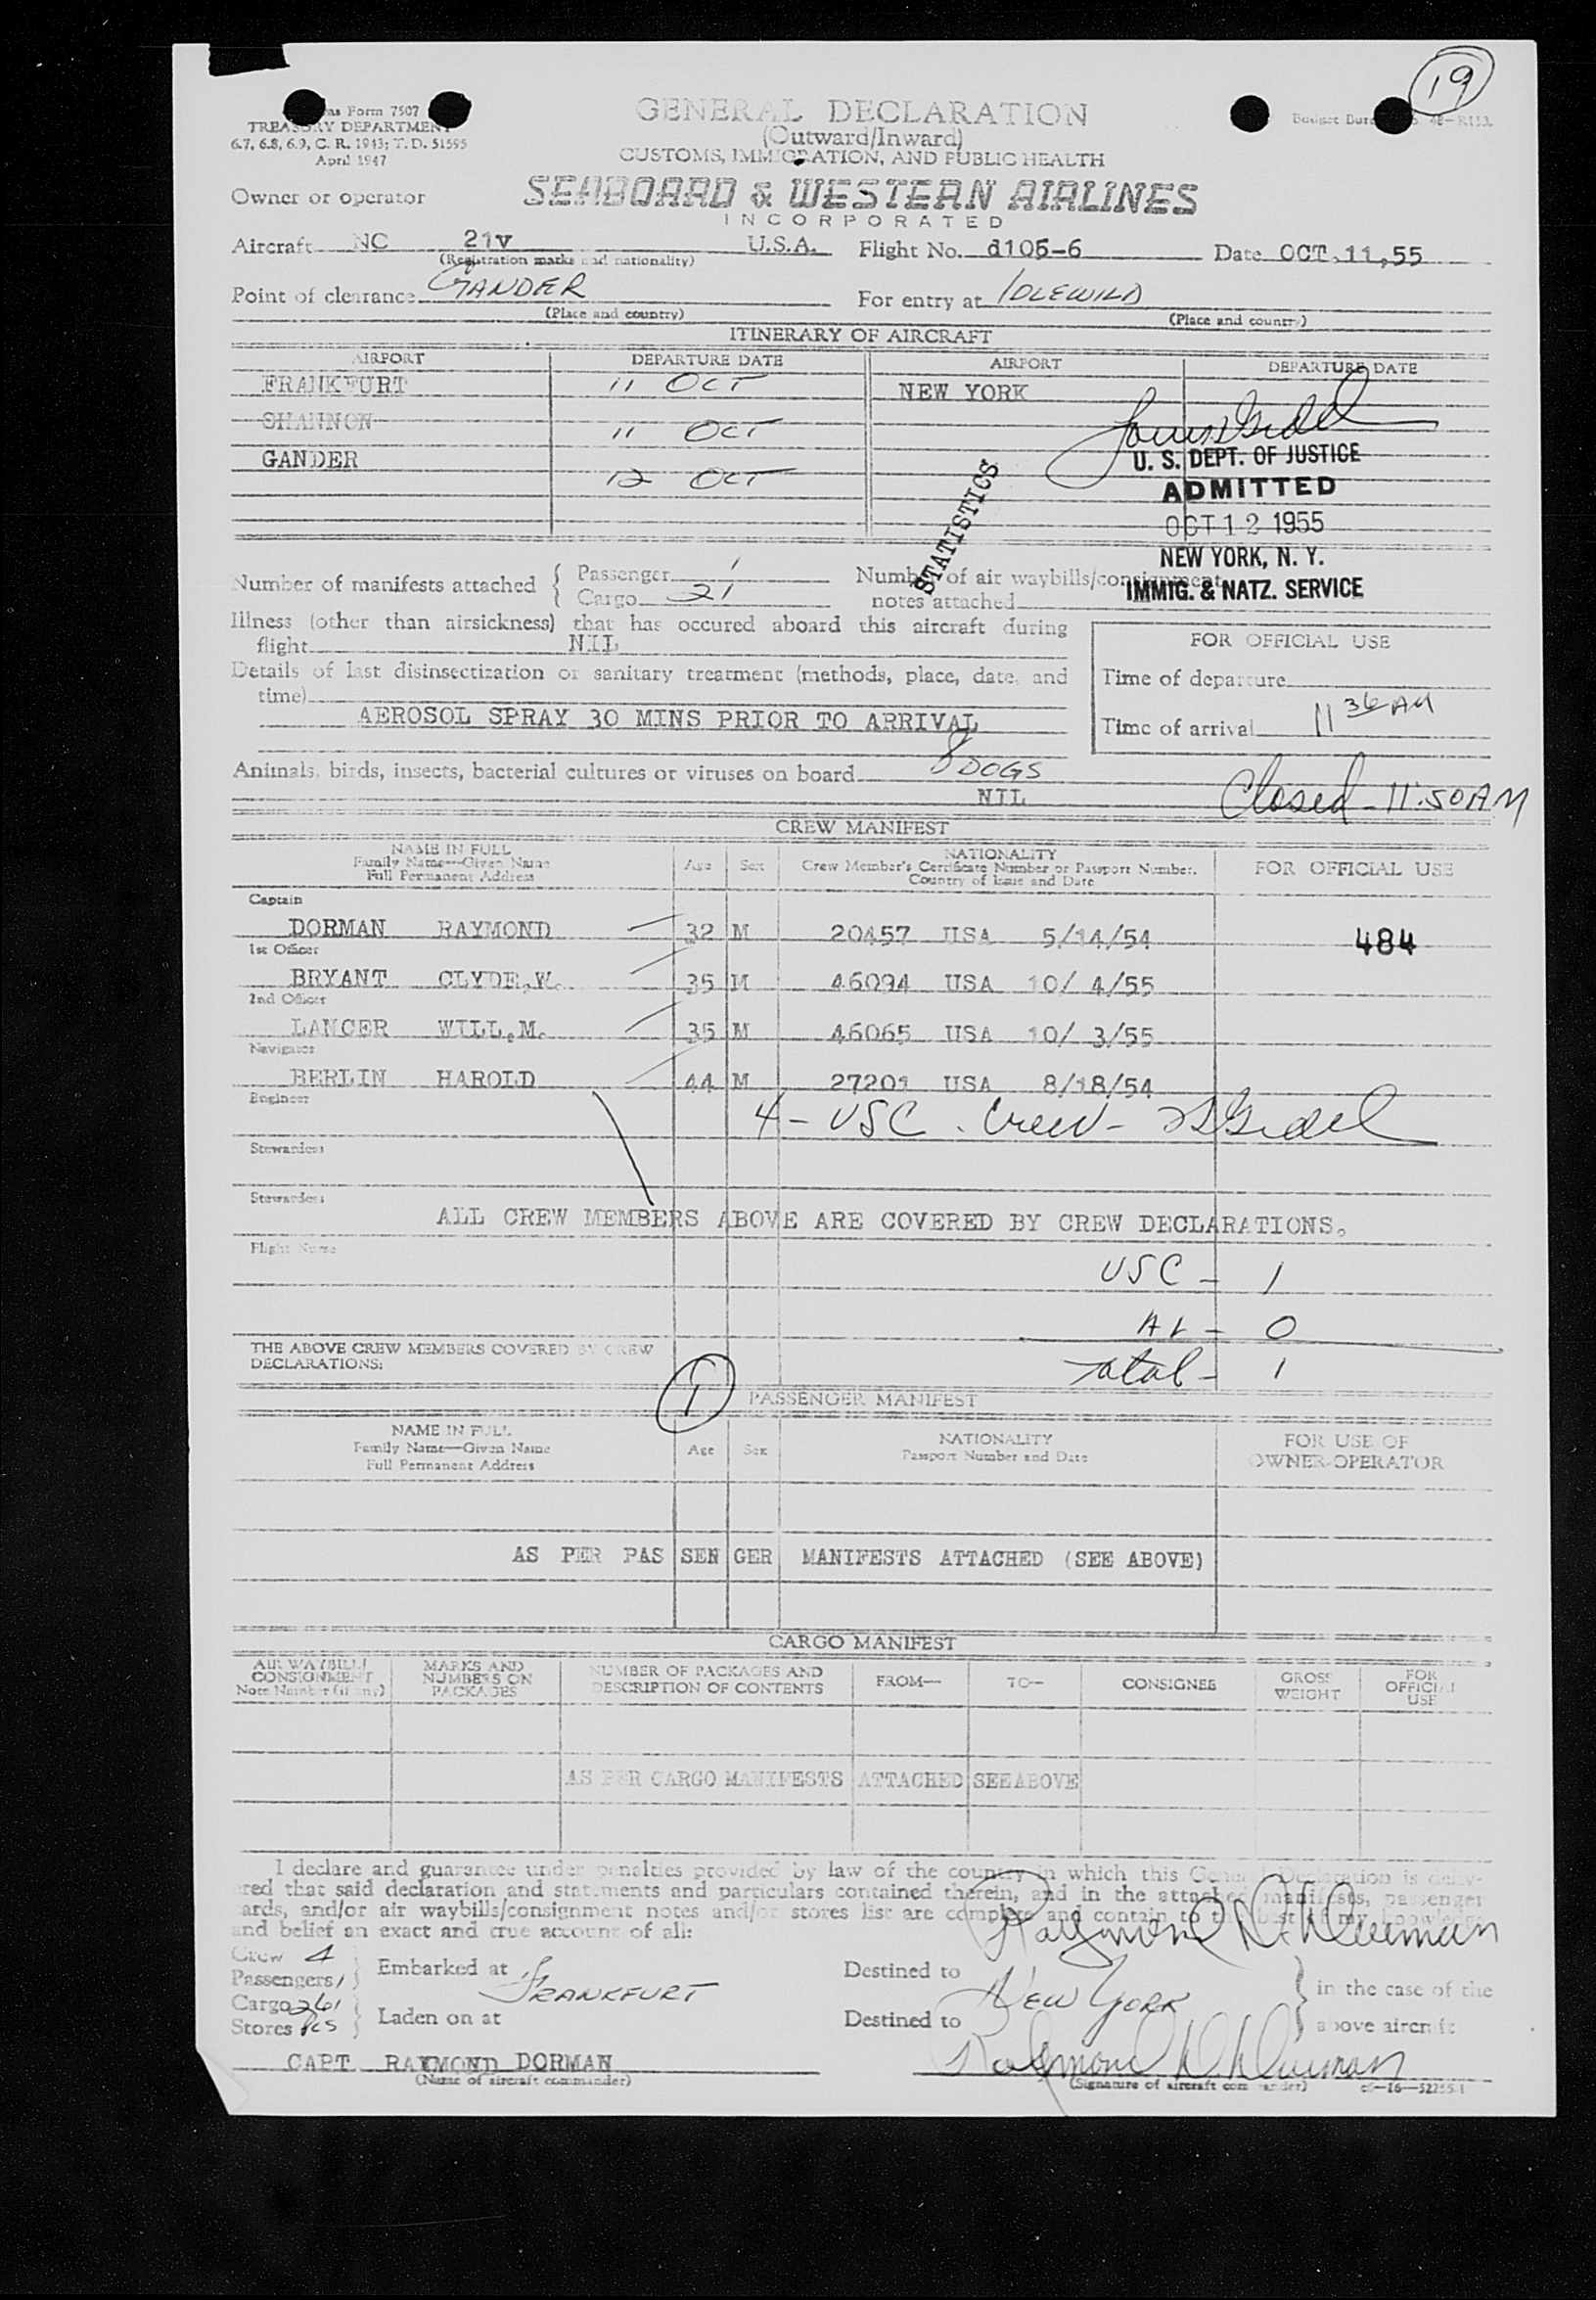 19
Form 7507
TREASURY DEPARTMENT
6.7, 6.8, 6.9, C. R. 1943; T. D. 51595
April 1947
GENERAL DECLARATION
(Outward/Inward)
CUSTOMS, IMMIGRATION, AND PUBLIC HEALTH
Owner or operator
SEABOARD & WESTERN AIRLINES
INCORPORATED
Aircraft NC 21v U.S.A. Flight No. d105-6 Date OCT.11,55
(Registration marks and nationality)
Point of clearance GANDER For entry at IDLEWILD
(Place and country) (Place and country)
ITINERARY OF AIRCRAFT
AIRPORT DEPARTURE DATE AIRPORT DEPARTURE DATE
FRANKFURT 11 OCT NEW YORK
SHANNON 11 OCT
GANDER 12 OCT
U. S. DEPT. OF JUSTICE
ADMITTED
OCT 12 1955
NEW YORK, N. Y.
IMMIG. & NATZ. SERVICE
STATISTICS
Number of manifests attached { Passenger 1
Cargo 21
Number of air waybills/consignment
notes attached
Illness (other than airsickness) that has occured aboard this aircraft during
flight NIL
Details of last disinsectization or sanitary treatment (methods, place, date, and
time)
AEROSOL SPRAY 30 MINS PRIOR TO ARRIVAL
FOR OFFICIAL USE
Time of departure
Time of arrival 11 36 AM
Animals, birds, insects, bacterial cultures or viruses on board 8 DOGS
NIL
Closed - 11:50 AM
CREW MANIFEST
NAME IN FULL
Family Name—Given Name
Full Permanent Address
Age Sex
NATIONALITY
Crew Member's Certificate Number or Passport Number,
Country of Issue and Date
FOR OFFICIAL USE
Captain
DORMAN RAYMOND 32 M 20457 USA 5/14/54 484
1st Officer
BRYANT CLYDE.W. 35 M 46094 USA 10/ 4/55
2nd Officer
LANCER WILL.M. 35 M 46065 USA 10/ 3/55
Navigator
BERLIN HAROLD 44 M 27201 USA 8/18/54
Engineer
4 - USC . Crew -
Stewardess
Stewardess
ALL CREW MEMBERS ABOVE ARE COVERED BY CREW DECLARATIONS.
Flight Nurse
USC - 1
AL - 0
Total - 1
THE ABOVE CREW MEMBERS COVERED BY CREW
DECLARATIONS:
1
PASSENGER MANIFEST
NAME IN FULL
Family Name—Given Name
Full Permanent Address
Age Sex
NATIONALITY
Passport Number and Date
FOR USE OF
OWNER-OPERATOR
AS PER PAS SEN GER MANIFESTS ATTACHED (SEE ABOVE)
CARGO MANIFEST
AIR WAYBILL/
CONSIGNMENT
Note Number (if any)
MARKS AND
NUMBERS ON
PACKAGES
NUMBER OF PACKAGES AND
DESCRIPTION OF CONTENTS
FROM— TO— CONSIGNEE
GROSS
WEIGHT
FOR
OFFICIAL
USE
AS PER CARGO MANIFESTS ATTACHED SEE ABOVE
I declare and guarantee under penalties provided by law of the country in which this General Declaration is deliv-
ered that said declaration and statements and particulars contained therein, and in the attached manifests, passenger
cards, and/or air waybills/consignment notes and/or stores list are complete and contain to the best of my knowledge
and belief an exact and true account of all:
Raymond Dorman
Crew 4
Passengers 1
Embarked at FRANKFURT
Destined to NEW YORK
in the case of the
above aircraft
Cargo 261
Stores PCS
Laden on at
Destined to
CAPT RAYMOND DORMAN
(Name of aircraft commander)
(Signature of aircraft commander)